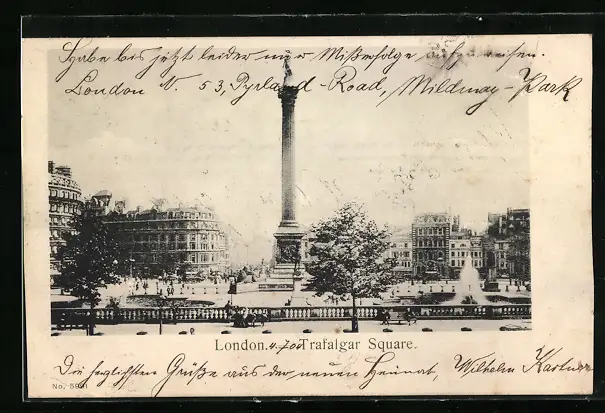 Habe bis jetzt leider nur Mißerfolge aufzuweisen.
London N. 53, Pyrland-Road, Mildmay-Park
London. 4.7.00 Trafalgar Square.
Die herzlichsten Grüße aus der neuen Heimat, Wilhelm
No. 5901